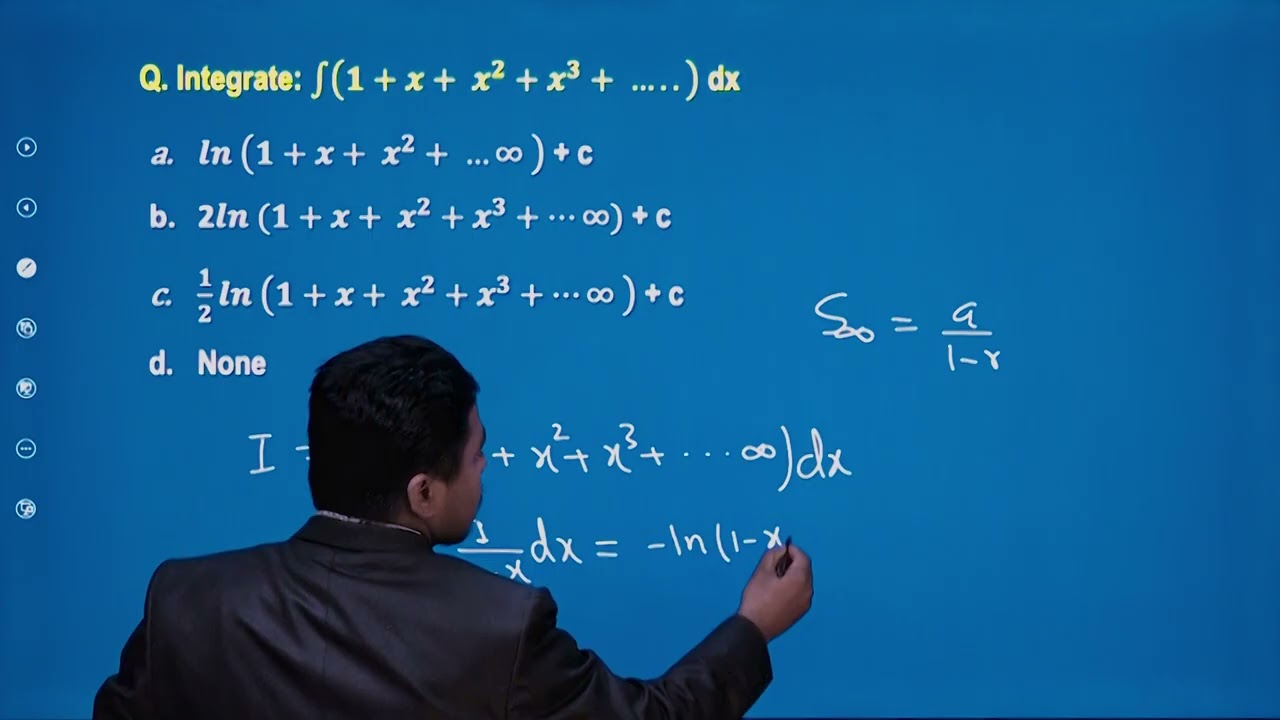 Q. Integrate: ∫(1 + x + x² + x³ + .....) dx
a. ln (1 + x + x² + ...∞) + c
b. 2ln (1 + x + x² + x³ + ⋯∞) + c
c. ½ ln (1 + x + x² + x³ + ⋯∞) + c
d. None
S∞ = a/(1-r)
I + x² + x³ + ⋯∞)dx
dx = -ln(1-x